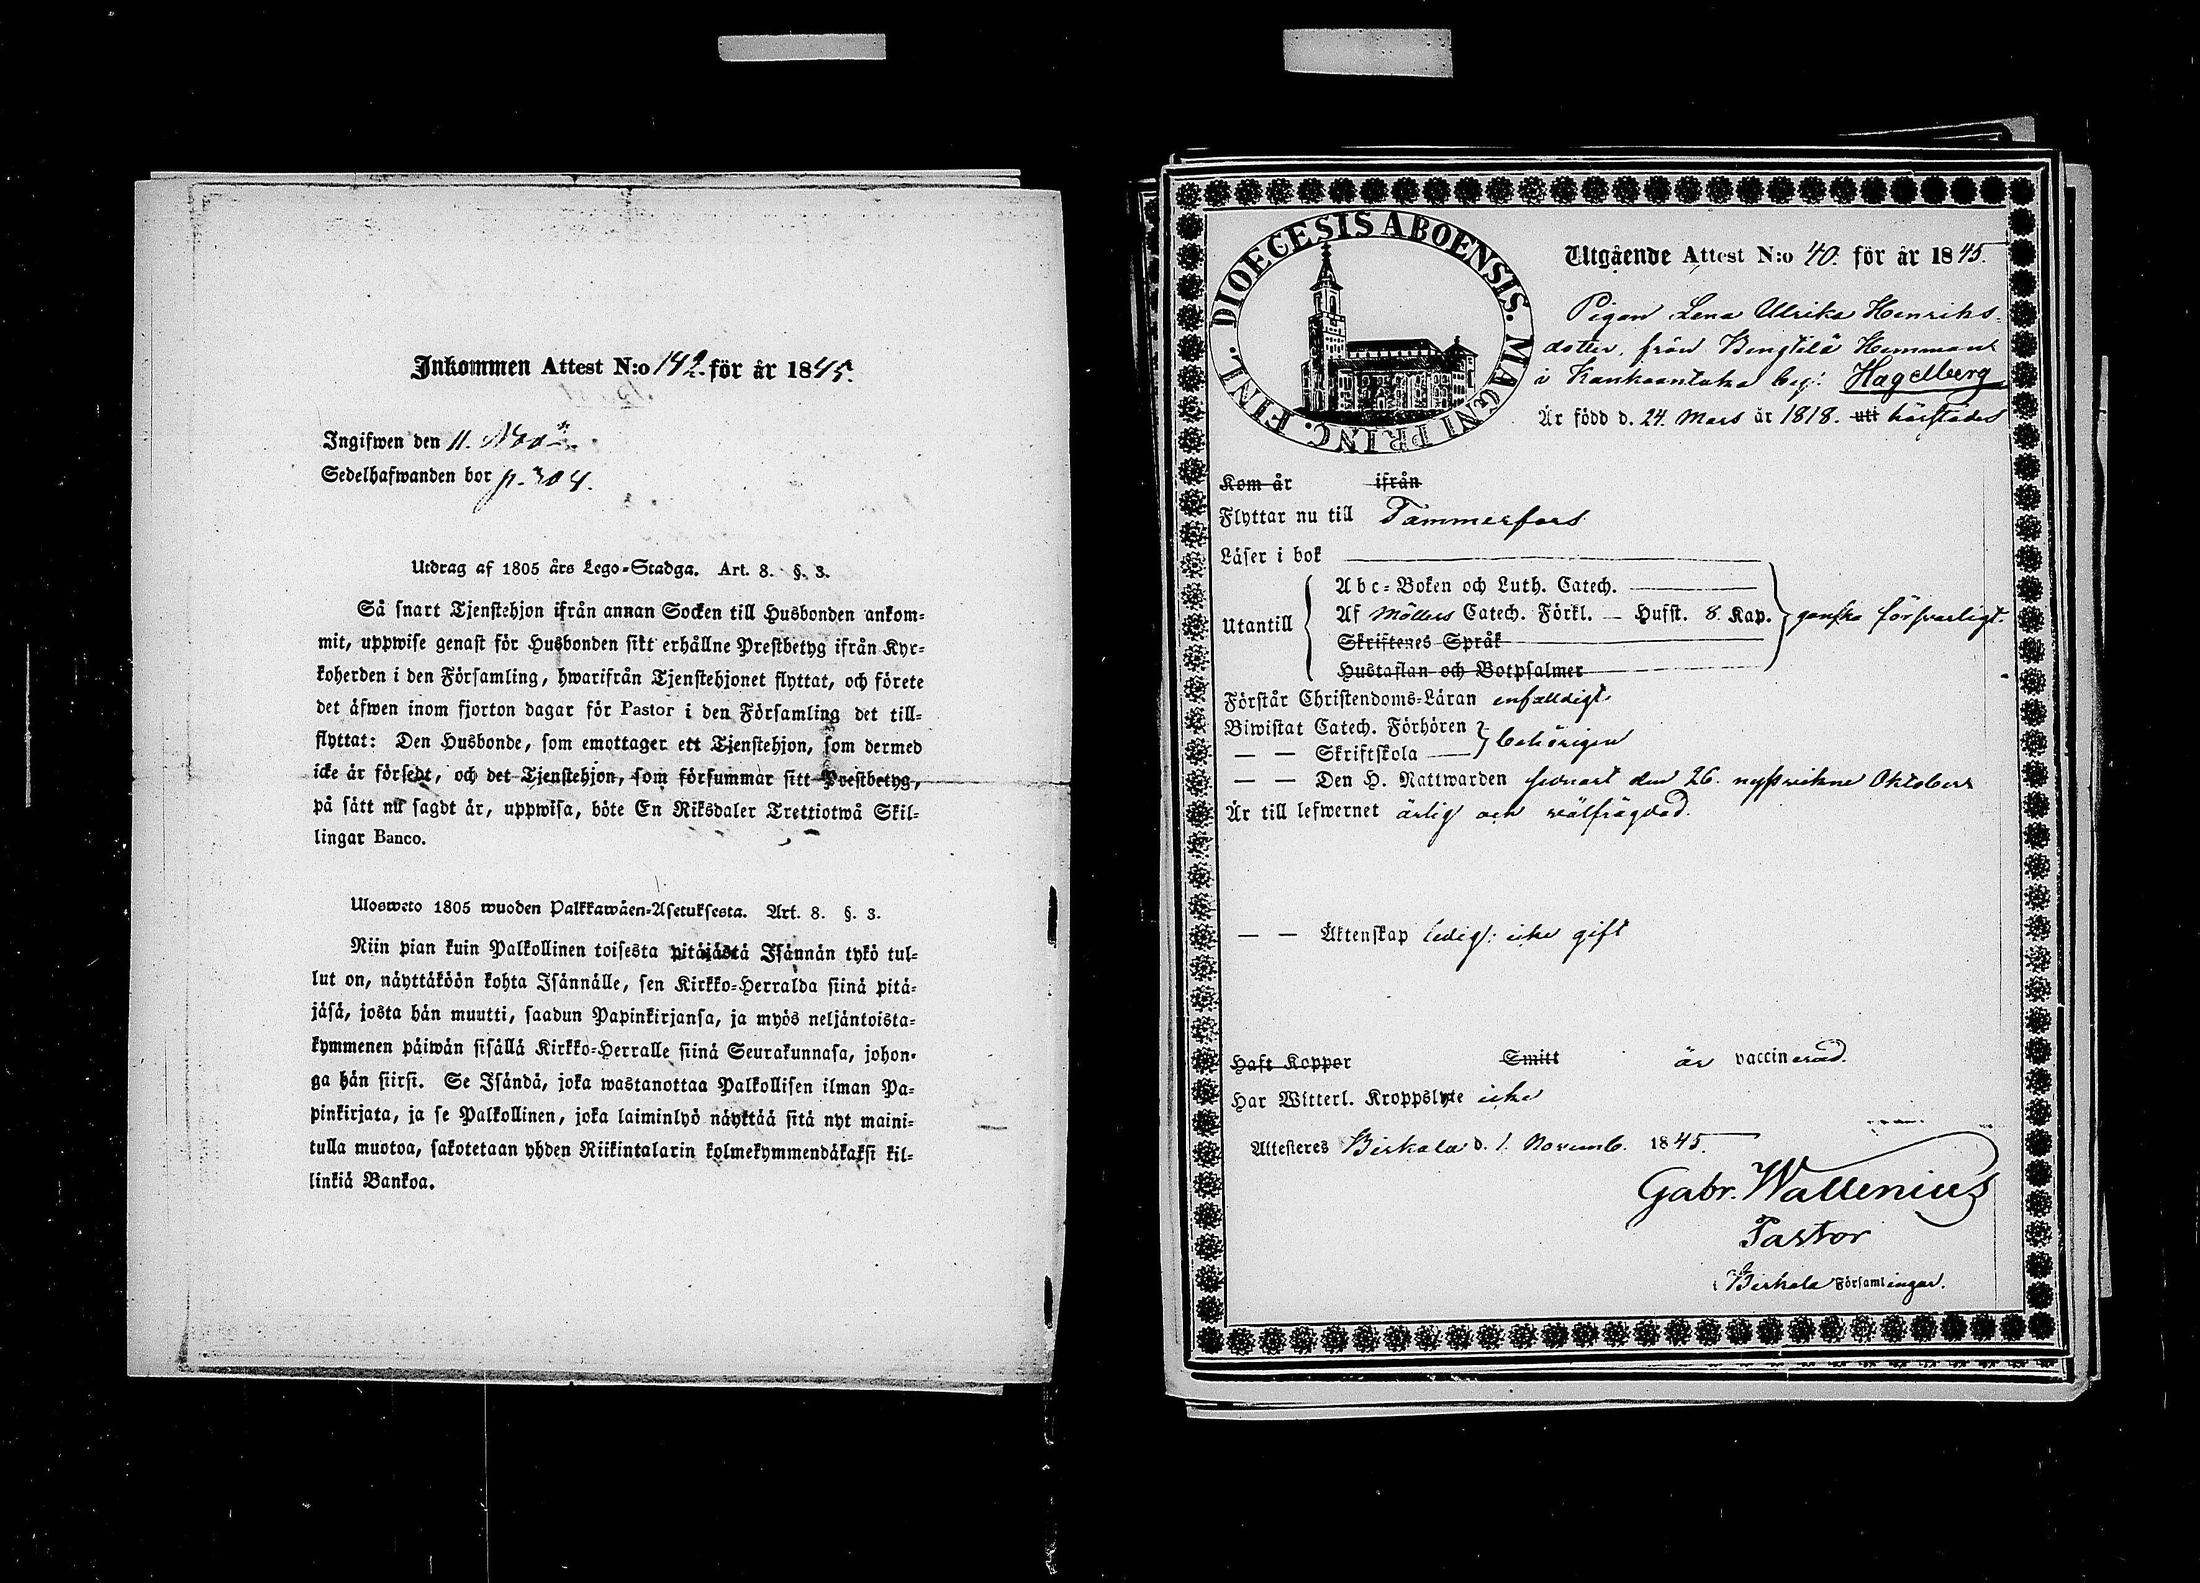 Inkommen Attest N:o 142. för år 1845.
Ingifwen den 11. Nov
Sedelhafwanden bor p. 304.
Utdrag af 1805 års Lego-Stadga. Art. 8. §. 3.
Så snart Tjenstehjon ifrån annan Socken till Husbonden ankom-
mit, uppwise genast för Husbonden sitt erhållne Prestbetyg ifrån Kyr-
koherden i den Församling, hwarifrån Tjenstehjonet flyttat, och förete
det äfwen inom fjorton dagar för Pastor i den Församling det till-
flyttat: Den Husbonde, som emottager ett Tjenstehjon, som dermed
icke är försedt, och det Tjenstehjon, som försummar sitt Prestbetyg,
på sätt nu sagdt är, uppwisa, böte En Riksdaler Trettiotwå Skil-
lingar Banco.
Ulosweto 1805 wuoden Palkkawäen-Asetuksesta. Art. 8. §. 3.
Niin pian kuin Palkollinen toisesta pitäjästä Isännän tykö tul-
lut on, näyttäköön kohta Isännälle, sen Kirkko-Herralda siinä pitä-
jäsä, josta hän muutti, saadun Papinkirjansa, ja myös neljäntoista-
kymmenen päiwän sisällä Kirkko-Herralle siinä Seurakunnasa, johon-
ga hän siirsi. Se Isändä, joka wastanottaa Palkollisen ilman Pa-
pinkirjata, ja se Palkollinen, joka laiminlyö näyktää sitä nyt maini-
tulla muotoa, sakotetaan yhden Riikintalarin kolmekymmendäkaksi kil-
linkiä Bankoa.
DIOECESIS ABOENSIS. MAGNI PRINC. FINL.
Utgående Attest N:o 40. för år 1845.
Pigan Lena Ulrika Henriks
dotter, från Bengtilä Hemman
i Kankaantaka by: Hagelberg
Är född d. 24. Mars år 1818. utt härstädes
Kom år ifrån
Flyttar nu till Tammerfors
Läser i bok
Abc-Boken och Luth. Catech.
Utantill Af Möllers Catech. Förkl. — Husst. 8. Kap. ganska försvarligt.
Skriftenes Språk
Hustaflan och Botpsalmer
Förstår Christendoms-Läran enfalldigt
Biwistat Catech. Förhören
— — Skriftskola behörigen
— — Den H. Nattwarden senast den 26. nyssvekne Oktober
Är till lefwernet ärlig och välfrägdad.
— — Äktenskap ledig: icke gift
Haft Koppor Smitt är vaccinerad.
Har Witterl. Kroppslyte icke
Attesteres Birkala d. 1. Novemb. 1845.
Gabr. Wallenius
Pastor
Birkala Församlingar.